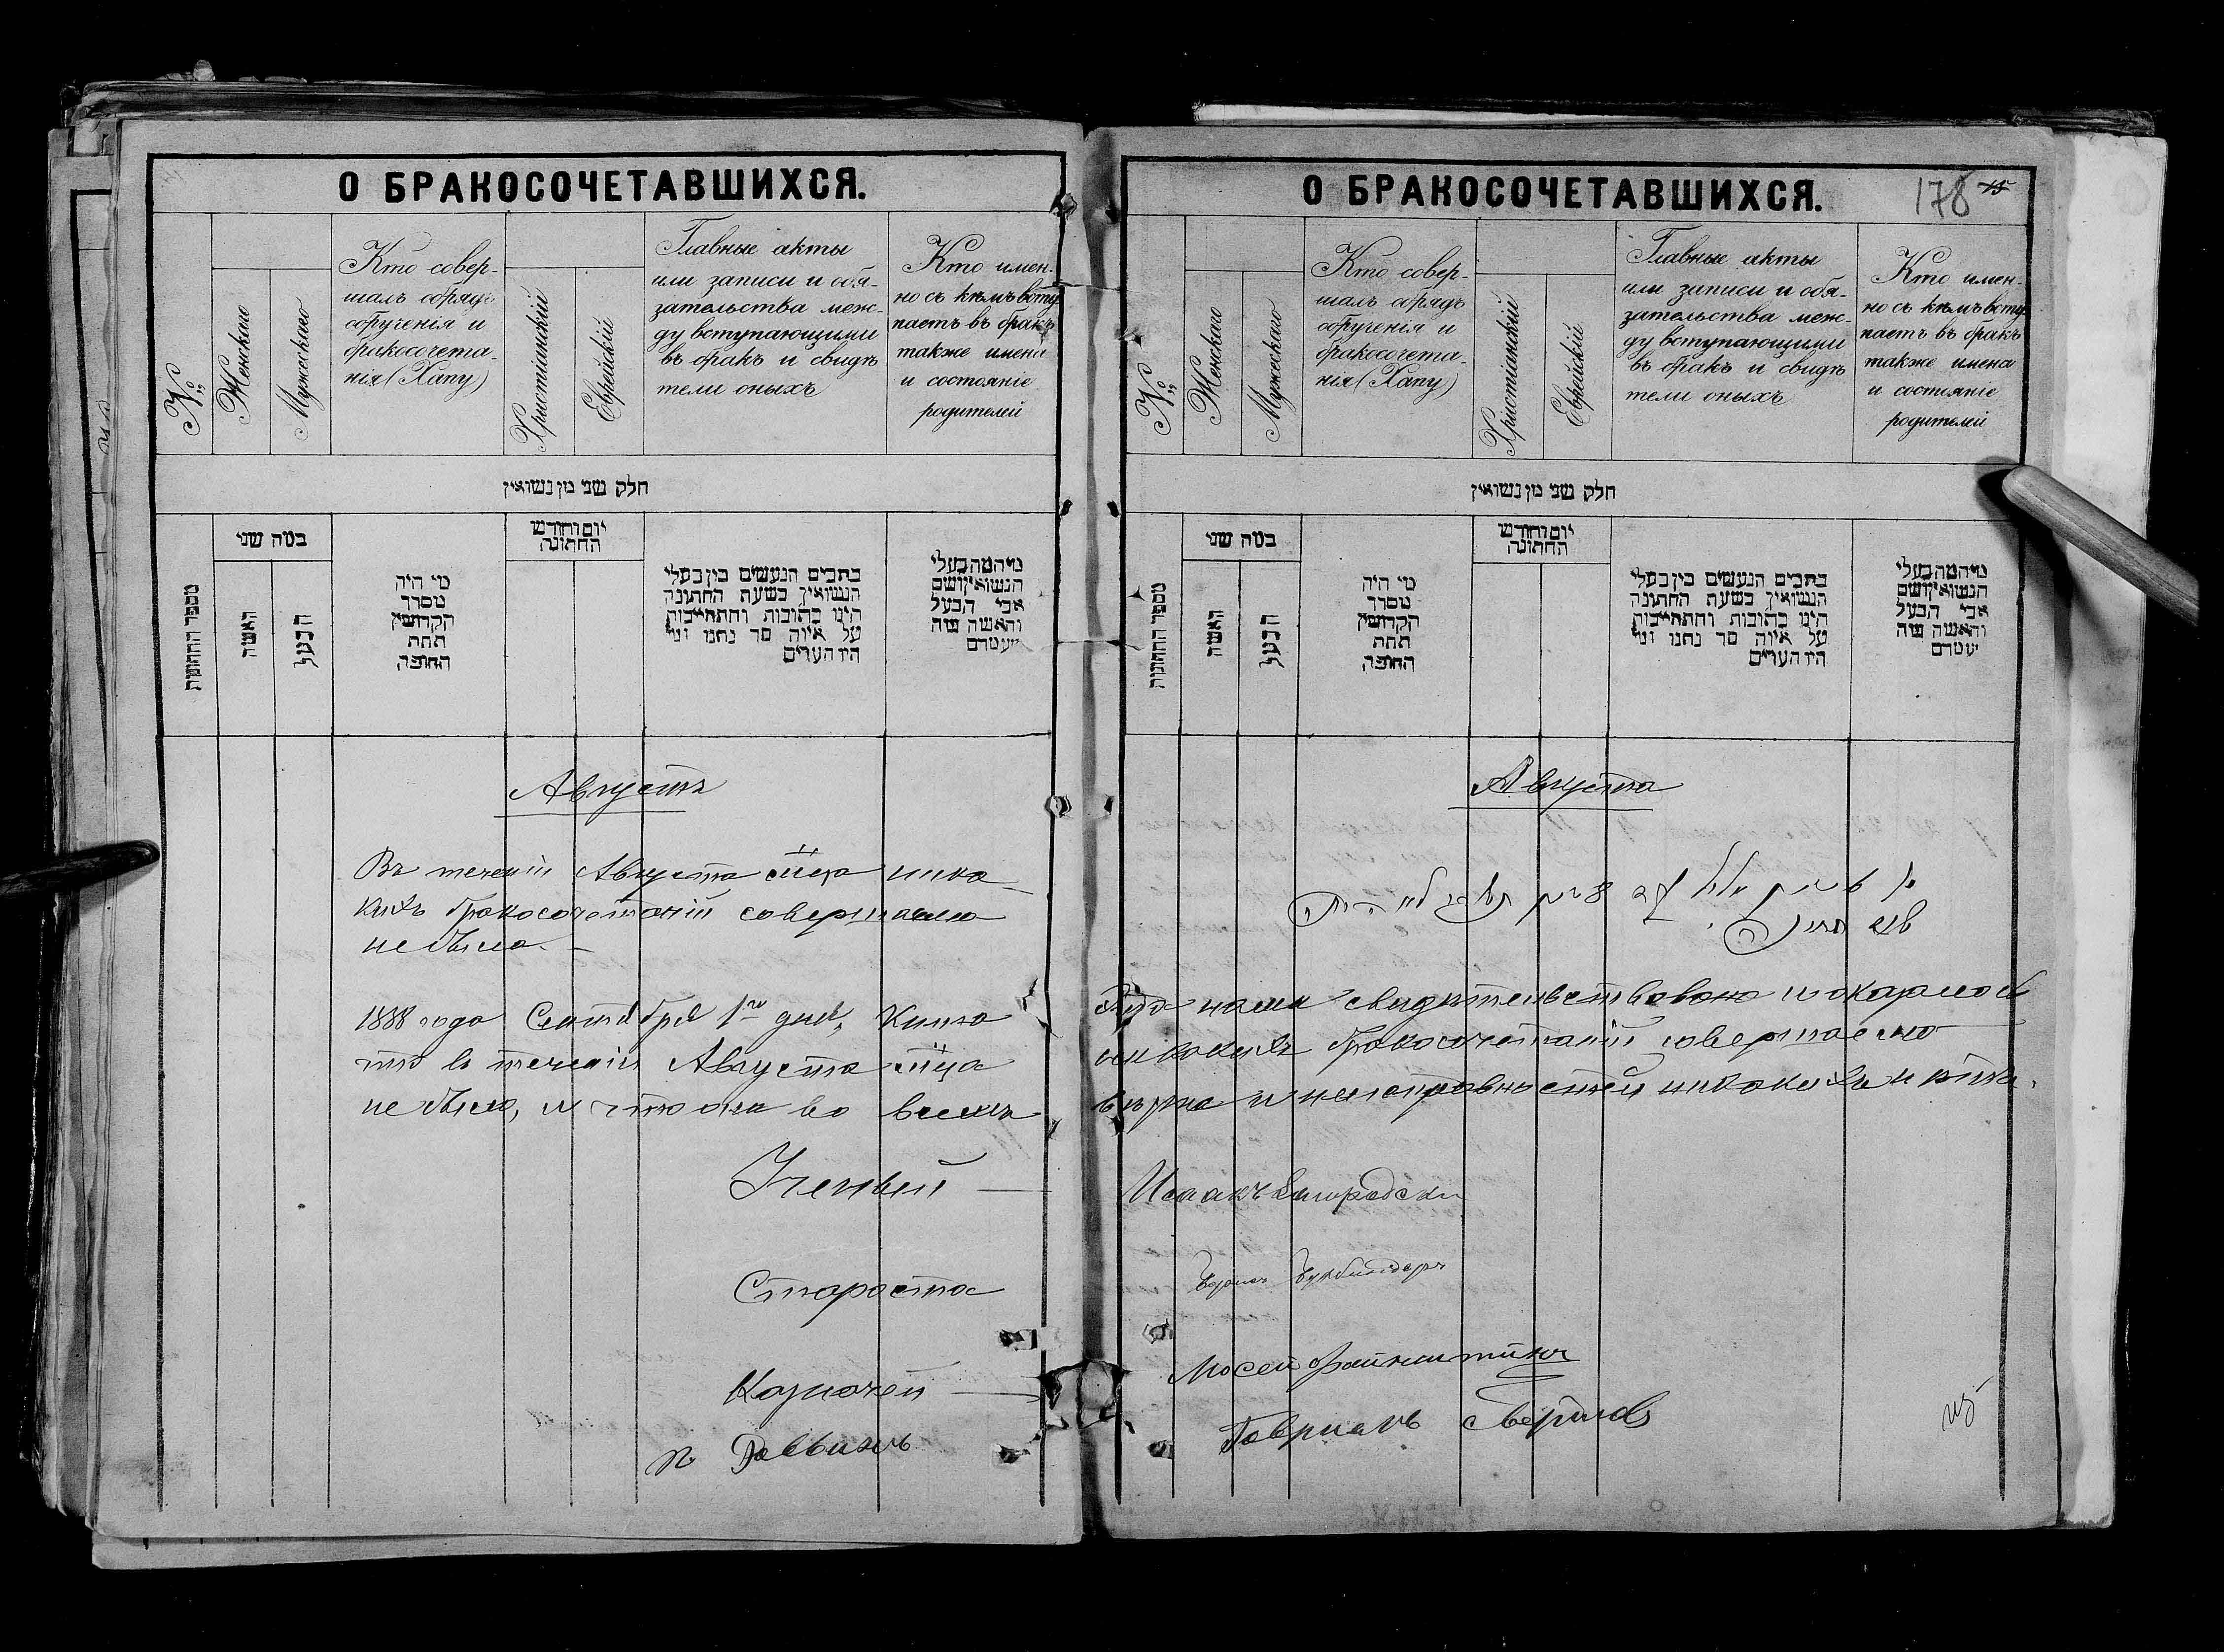 О БРАКОСОЧЕТАВШИХСЯ.
№
Женскаго
Мужескаго
Кто совер-
шалъ обрядъ
обрученія и
бракосочета-
нія (Хапу)
Христіанскій
Еврейскій
Главные акты
или записи и обя-
зательства меж-
ду вступающими
въ бракъ и свидѣ
тели оныхъ
Кто имен-
но съ кѣмъ всту
паетъ въ бракъ
также имена
и состояніе
родителей
חלק שני מן נשואין
מספר החתונות
כמה שני
האשה
הבעל
מי היה
מסדר
הקדושין
תחת
החופה
יום וחודש
החתונה
כתבים הנעשים בין בעלי
הנשואין בשעת החתונה
היינו כתובות והתחייבות
על איזה סך נתנו ומי
היו העדים
מי המה בעלי
הנשואין ושם
אבי הבעל
והאשה מה
מעמדם
Августъ
Въ теченіи Августа м̃ца ника-
кихъ бракосочетаній совершаемо
не было.
1888 года Сентября 1го дня, Книга
что въ теченіи Августа м̃ца
не было, и что она во всемъ
Ученый
Староста
Казначей
п. Раввинъ
О БРАКОСОЧЕТАВШИХСЯ.
178
№
Женскаго
Мужескаго
Кто совер-
шалъ обрядъ
обрученія и
бракосочета-
нія (Хапу)
Христіанскій
Еврейскій
Главные акты
или записи и обя-
зательства меж-
ду вступающими
въ бракъ и свидѣ
тели оныхъ
Кто имен-
но съ кѣмъ всту
паетъ въ бракъ
также имена
и состояніе
родителей
חלק שני מן נשואין
מספר החתונות
כמה שני
האשה
הבעל
מי היה
מסדר
הקדושין
תחת
החופה
יום וחודש
החתונה
כתבים הנעשים בין בעלי
הנשואין בשעת החתונה
היינו כתובות והתחייבות
על איזה סך נתנו ומי
היו העדים
מי המה בעלי
הנשואין ושם
אבי הבעל
והאשה מה
מעמדם
Августа
нами свидѣтельствована и оказалось
никакихъ бракосочетаній совершаемо
вѣрна и неисправностей никакихъ нѣтъ.
Исаакъ
Мосей Файнштейнъ
Говриилъ